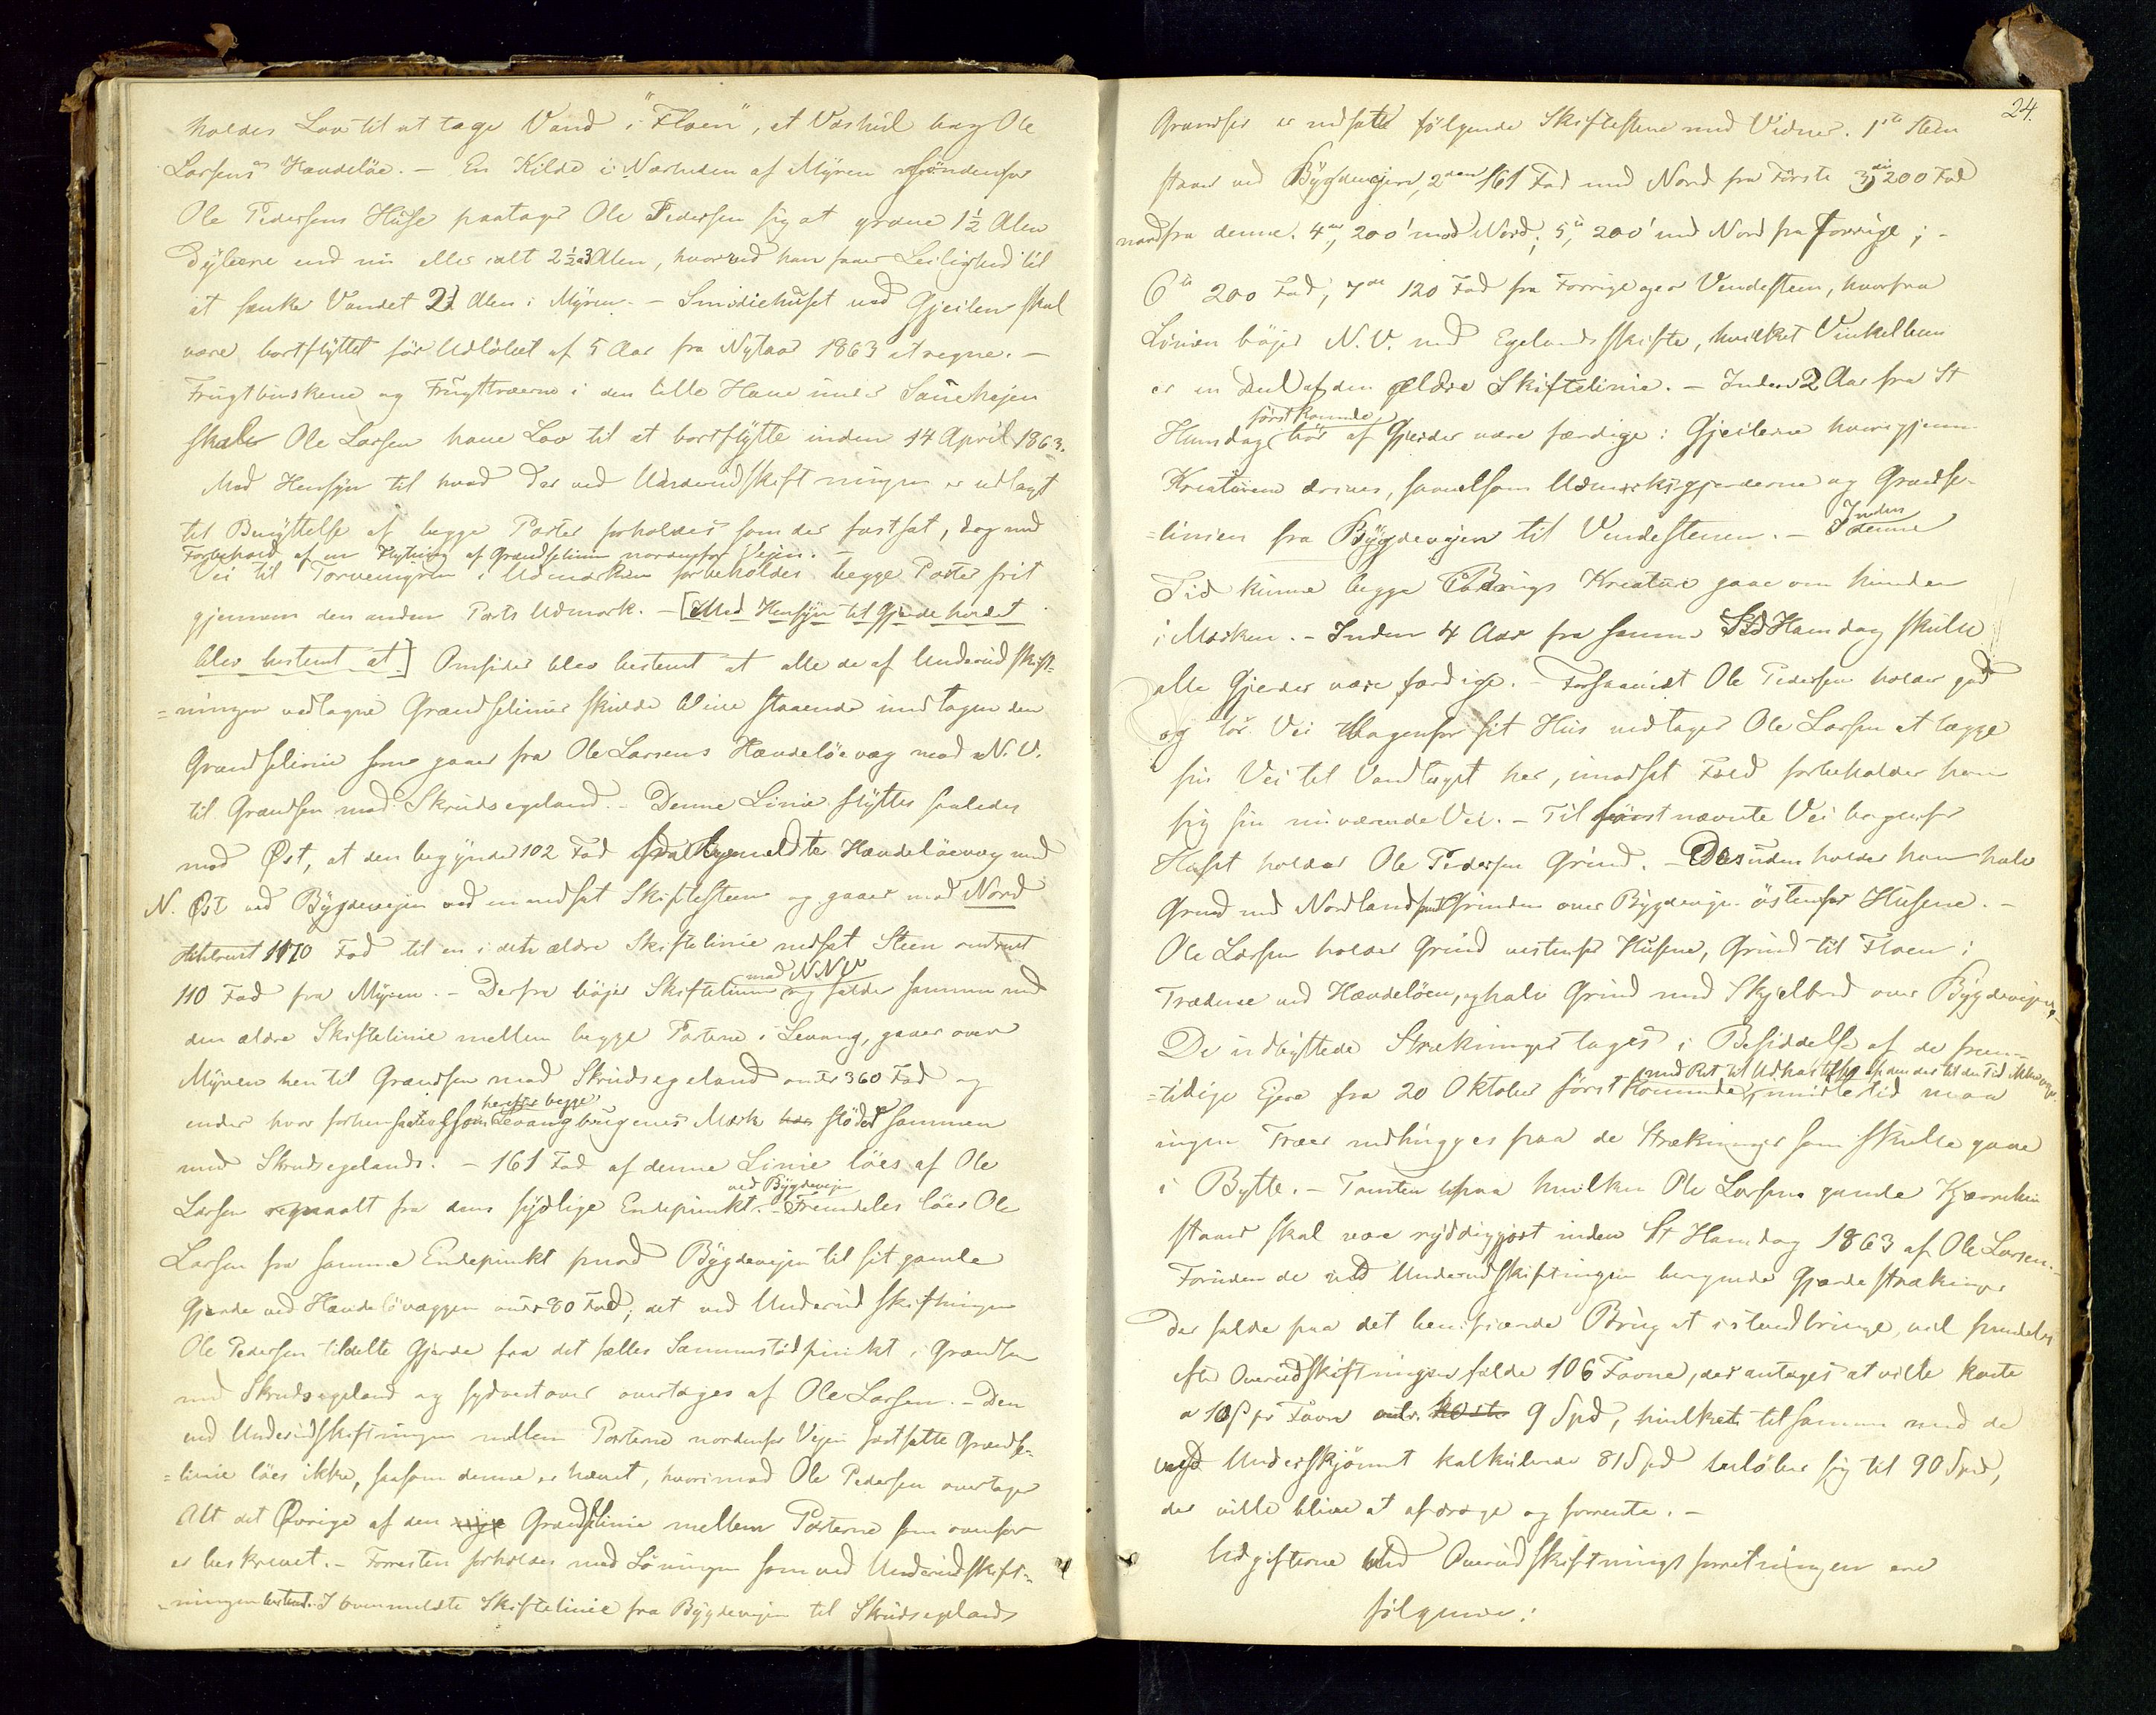 holdes Lov til at tage Vand i "Floen", et Vashul bag Ole
Larsens Havdelöe. – En Kilde i Nærheden af Myren söndenfor
Ole Pedersens Huse paatager Ole Pedersen sig at grave 1½ Alen
dybere end nu eller ialt 2½ a 3 Alen, hvorved han faaer Leilighed til
at sænke Vandet 2½ Alen i Myren. – Smidiehuset ved Gjeilen skal
være bortflyttet för Udlöbet af 5 Aar fra Nytaar 1863 at regne. –
Frugtbuskene og Frugttræerne i den lille Have under Sauehejen
skal Ole Larsen have Lov til at bortflytte inden 14 April 1863.
Med Hensyn til hvad der ved Underudskiftningen er udlagt
til Benyttelse af begge Parter forholdes som der fastsat, dog med
Forbehold af en Flytning af Grændselinien nordenfor Vejen. –
Vei til Torvemyren i Udmarken forbeholdes begge Parter frit
gjennem den anden Parts Udmark. – [Med Hensyn til Gjerdeholdet
blev bestemt at] Omsider blev bestemt at alle de af Underudskift=
=ningen vedtagne Grændselinier skulde blive staaende undtagen den
Grændselinie som gaaer fra Ole Larsens Havdelöevæg mod N. V.
til Grændsen mod Skrudsegeland. – Denne Linie flyttes saaledes
mod Öst, at den begynder 102 Fod fra bemeldte Havdelöevæg mod
N. Öst ved Bygdevejen ved en nedsat Skiftesteen og gaaer mod Nord
1170 Fod til en i det ældre Skiftelinie nedsat Steen omtrent
110 Fod fra Myren. – Derfra böjer Skiftelinien mod N N V og falder sammen med
den ældre Skiftelinie mellem begge Parterne i Levang, gaaer over
Myren hen til Grændsen mod Skrudsegeland omtr 360 Fod og
ender hvor forhen saavelsom herefter begge Levangbrugenes Mark stöder sammen
med Skrudsegelands. – 161 Fod af denne Linie löes af Ole
Larsen regnaalt fra dens sydlige Endepunkt ved Bygdevejen. – Fremdeles löes Ole
Larsen fra samme Endepunkt Bygdevejen til sit gamle
Gjerde ved Havdelövæggen omtr 80 Fod; det ved Underudskiftningen
Ole Pedersen tildelte Gjerde fra det fælles Sammenstödspunkt i Grændsen
med Skrudsegeland og sydvestover overtages af Ole Larsen. – Den
ved Underudskiftningen mellem Parterne nordenfor Vejen fastsatte Grændse=
=linie löes ikke, saasom denne er hævet, hvorimod Ole Pedersen overtager
Alt det Övrige af den Grændselinie mellem Parterne som ovenfor
er beskrevet. – Forresten forholdes med Löningen som ved Underudskift=
=ningen bestemt. I ovenmeldte Skiftelinie fra Bygdevejen til Skrudsegelands
24.
Grændser er nedsatte fölgende Skiftestene med Vidner. 1ste Steen
staaer ved Bygdevejen, 2den 161 Fod mod Nord fra Förste 3die 200 Fod
nordfra denne. 4de, 200' mod Nord; 5te, 200' mod Nord fra Forrige; –
6te 200 Fod, 7de 120 Fod fra Forrige er Vendesteen, hvorfra
Linien böjer N. V. mod Egelands skifte, hvilket Vinkelbeen
er en Deel af den ældre Skiftelinie. – Inden 2 Aar fra St
Hansdag förstkommende bör af Gjerder være færdige: Gjeilerne hvorigjennem
Kreaturene drives, saavelsom Udmarksgjerderne og Grændse=
=linien fra Bygdevejen til Vendestenen. – Inden denne
Tid kunne begge Brugs Kreatur gaae om hinanden
i Marken. – Inden 4 Aar fra samme St Hansdag skulle
alle Gjerder være færdige. – Forsaavidt Ole Pedersen holder god
og tör Vei bagenfor sit Hus vedtager Ole Larsen at lægge
sin Vei til Vandtaget her, i modsat Fald forbeholder han
sig sin nuværende Vei. – Til först nævnte Vei bagenfor
Huset holder Ole Pedersen Grind. – Desuden holder han halv
Grind med Nordland Grinden over Bygdevejen östenfor Husene. –
Ole Larsen holder Grind vestenfor Husene, Grind til Floen i
Trædene ved Havdelöen, og halv Grind med Skjelbred over Bygdevejen. –
De udbyttede Strækninger tages i Besiddelse af de frem=
=tidige Ejere fra 20 Oktober förstkommende med Ret til Udhastelse af dem der til den Tid; imidlertid maa
ingen Træer nedhugges paa de Strækninger som skulle gaae
i Bytte. – Tomten hvorpaa hvilken Ole Larsens gamle Kjærrehus
staaer skal være ryddiggjort inden St Hansdag 1863 af Ole Larsen. –
Foruden de ved Underudskiftningen beregnede Gjerdestrækninger
der falde paa det Brug at istandbringe, vil fremdeles
efter Overudskiftningen falde 106 Favne, der antages at ville koste
a 10 ß pr Favn omtr. 9 Spd, hvilket tilsammen med de
ved Underskjönnet kalkulerede 81 Spd belöber sig til 90 Spd,
der ville blive at afdrage og forrente. –
Udgifterne ved Overudskiftningsforretningen ere
fölgende: